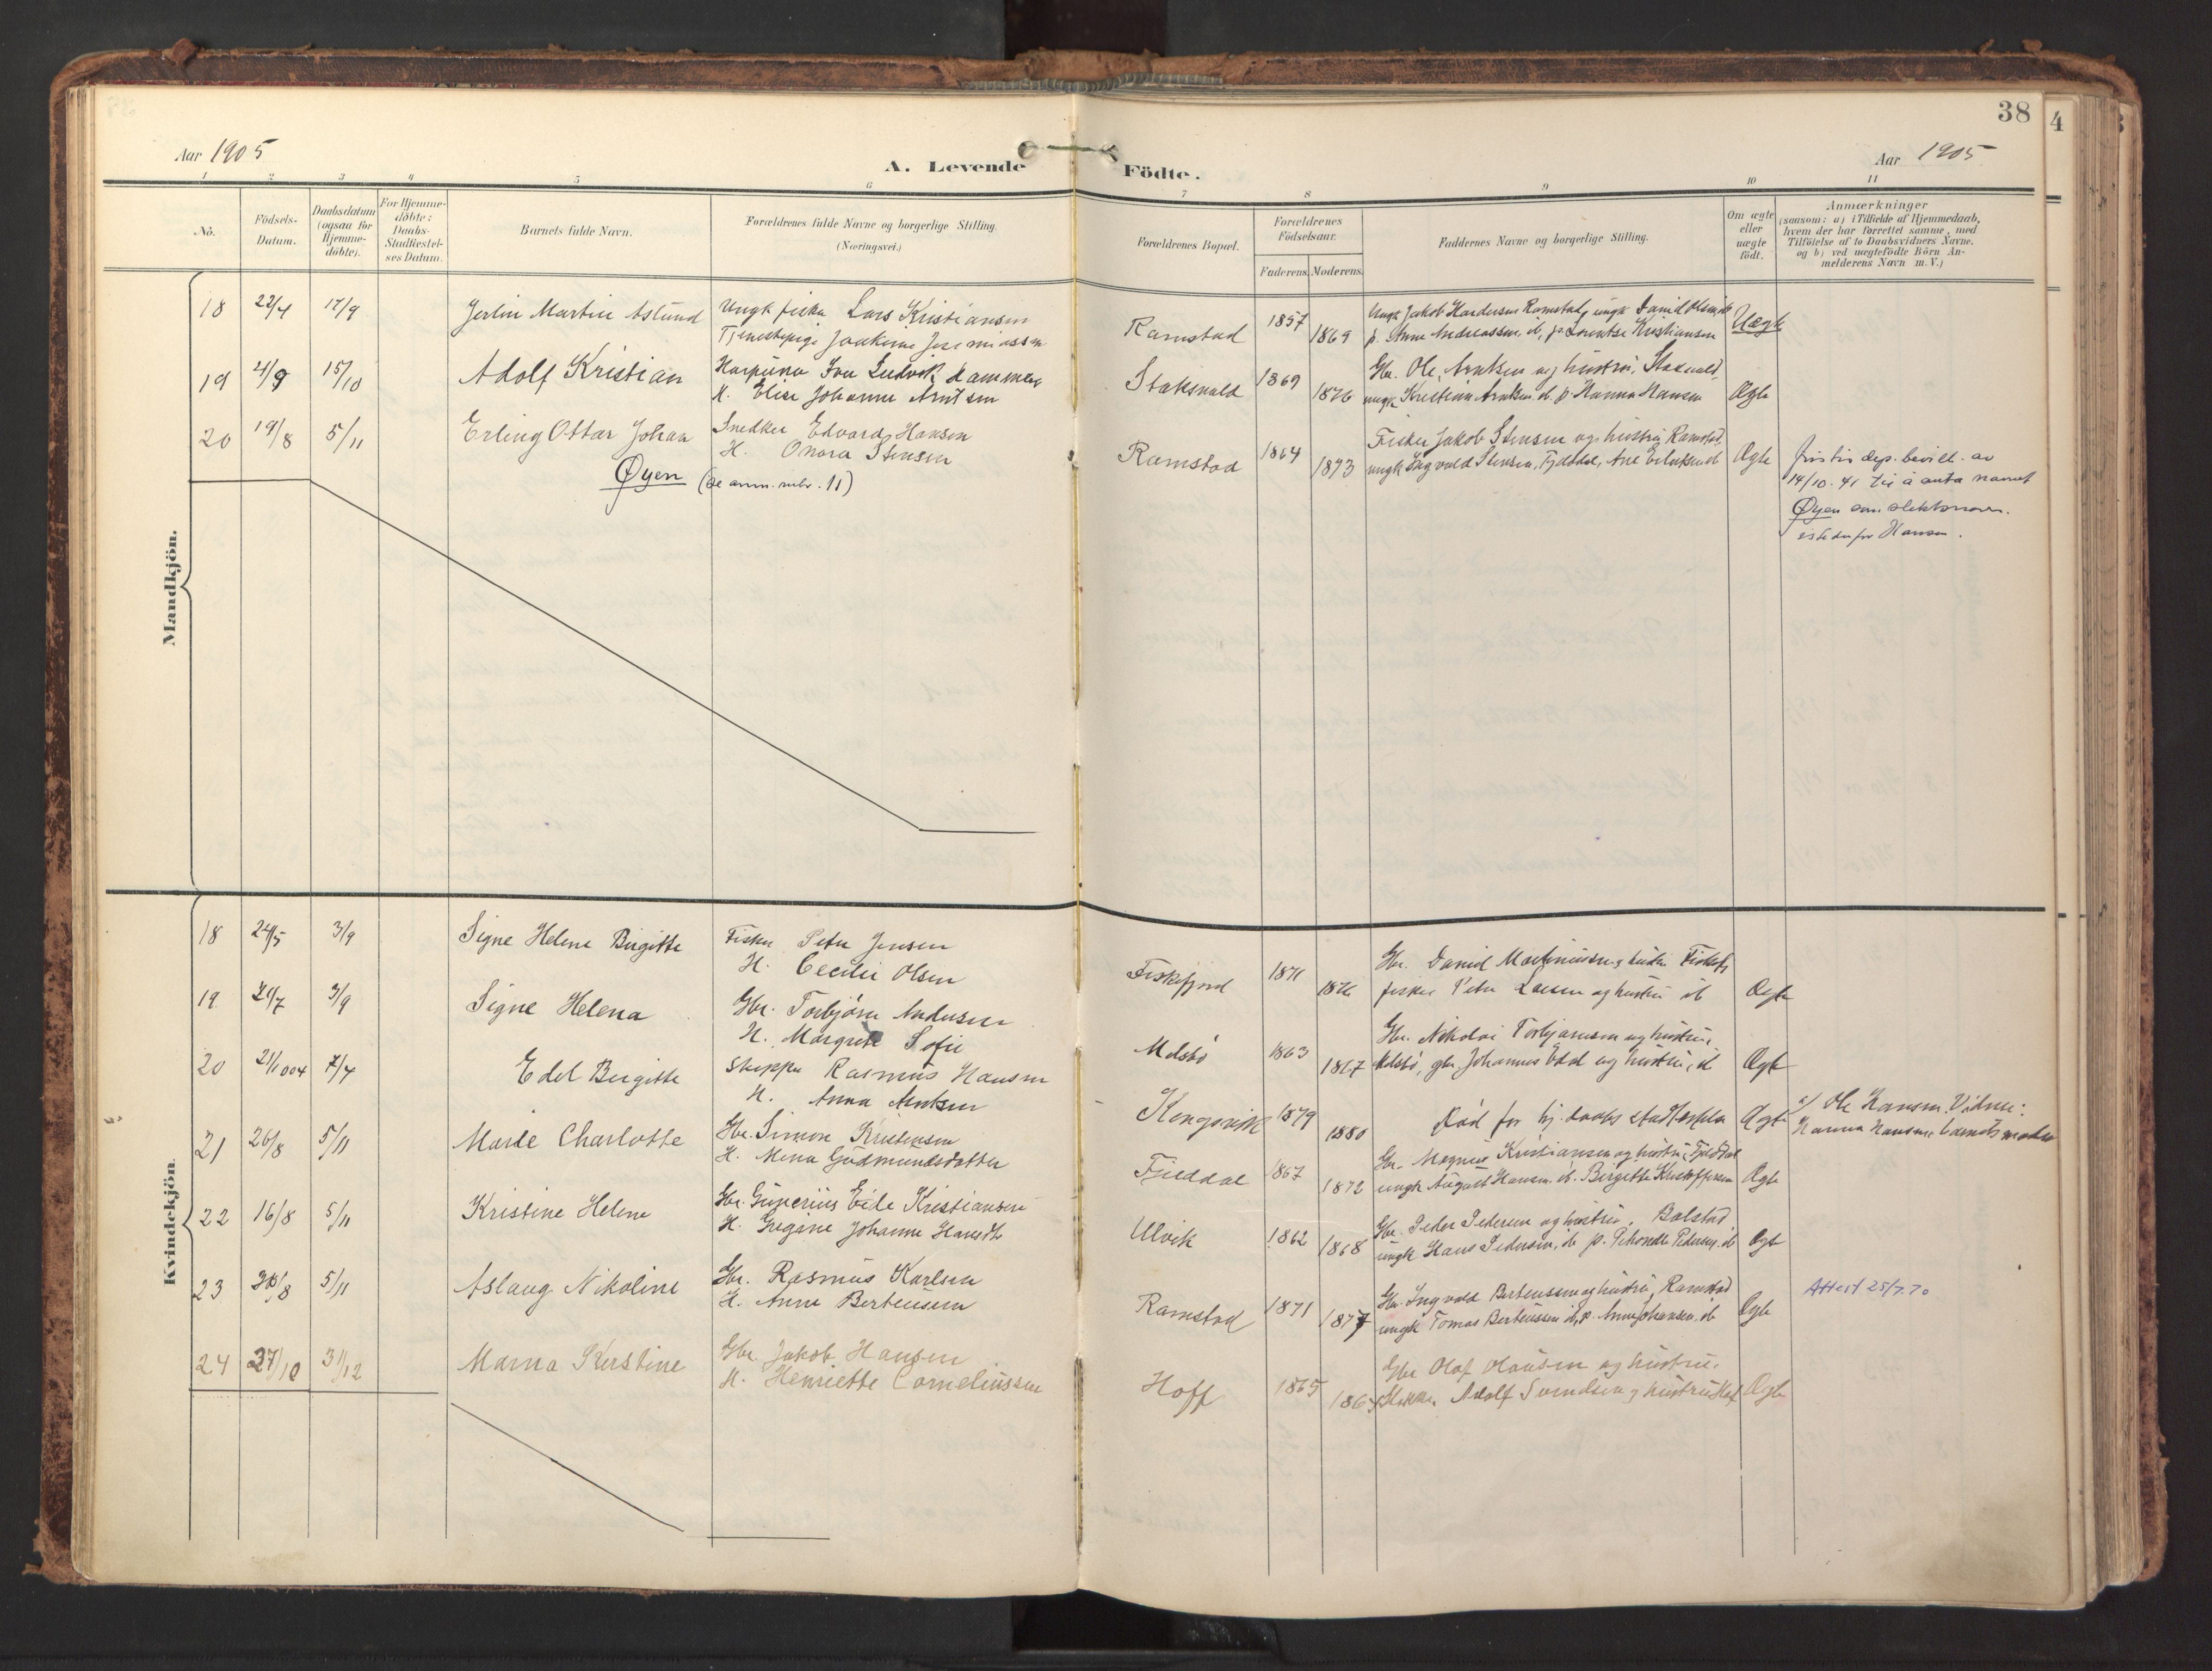 38
4
Aar 1905
A. Levende
Födte.
Aar 1905
1 2 3 4 5 6
7 8 9 10 11
No.
Födsels-
Datum.
Daabsdatum
(ogsaa for
Hjemme-
döbte).
For Hjemme-
döbte:
Daabs-
Stadfæstel-
ses Datum.
Barnets fulde Navn.
Forældrenes fulde Navne og borgerlige Stilling.
(Næringsvei.)
Forældrenes Bopæl.
Forældrenes
Födselsaar.
Faderens. Moderens.
Faddernes Navne og borgerlige Stilling.
Om ægte
eller
uægte
födt.
Anmærkninger
(saasom: a) i Tilfælde af Hjemmedaab,
hvem der har forrettet samme, med
Tilföielse af to Daabsvidners Navne.
og b) ved uægtefödte Börn An-
melderens Navn m. V.)
Mandkjön.
18 22/4 17/9 Martin Aslund Ungk fisker Lars Kristiansen
Ramstad 1857 1869 Uægte
19 4/9 15/10 Adolf Kristian
H. Elise Johanne Arntsen
1869 1876 Gbr. Ole Arntsen og hustru
ungk Kristian Arntsen ib. p. Hanna Hansen Ægte
20 19/8 5/11 Erling Ottar Johan Snedker Edvard Hansen
H. Onora Stensen
Øyen (se anm. rubr. 11)
Ramstad 1864 1873 Fisker Jakob Stensen og hustru, Ramstad,
ungk Ingvald Stensen, Fjeldal, Ane Eriksen ib Ægte
Justis dep. bevill. av
14/10-41 til å anta navnet
Øyen som slektsnavn.
istedenfor Hansen.
Kvindekjön.
18 24/5 3/9 Signe Helene Birgitte Fisker Peter Jensen
H. Cecilie Olsen
Fiskefjord 1871 1876 Gbr. David Martinussen og hustru
fisker Peter Larsen og hustru ib Ægte
19 3/9 Signe Helena Gbr. Torbjørn Andersen
H. Margrete Sofie
Melsbø 1863 1867 Gbr. Nikolai Torbjørnsen og hustru,
Melsbø, gbr. Johannes og hustru, ib Ægte
20 Edel Birgitte Skipper Rasmus Hansen
H. Anna Arntsen
Kongsvik 1879 1880 Død før hj. daabs Ægte a/ Ole Hansen. Vidner:
Hanna Hansen, barnets moder
21 26/8 5/11 Marie Charlotte Gbr. Simon Kristensen
H. Mena Gudmundsdatter
Fjelddal 1867 1872 Gbr. Magnus Kristiansen og hustru, Fjelddal
ungk August Hansen, ib. Birgitte Kristoffersen Ægte
22 16/8 5/11 Kristine Helene Gbr. Eide Kristiansen
H. Johanne
Ulvik 1862 1868 Gbr. Peder Pedersen og hustru, Balstad
ungk Hans Pedersen, ib p. Pedersen ib Ægte
23 5/11 Aslaug Nikoline Gbr. Rasmus Karlsen
H. Anne Berteussen
Ramstad 1871 1877 Gbr. Ingvald Berteussen og hustru, Ramstad
ungk Tomas Berteussen ib, p. Anne Johansen ib Ægte Attest 25/7.70
24 27/10 31/12 Marna Kirstine Gbr. Jakob Hansen
H. Henriette Corneliussen
Hoff 1865 Gbr Olaf Olausen og hustru,
Adolf Svendsen og hustru Hof Ægte